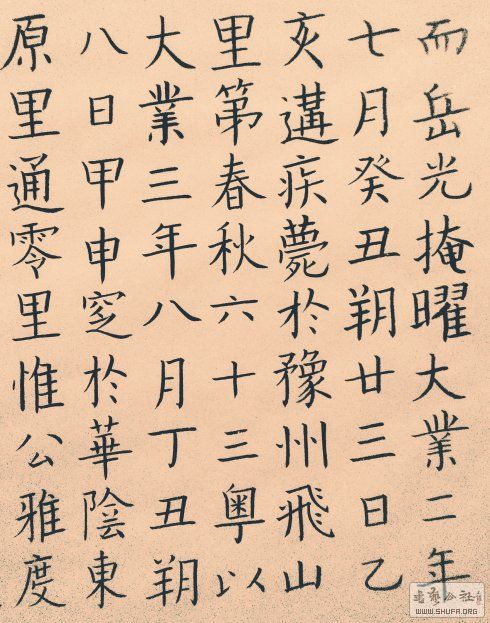 而岳光掩曜大業二年
七月癸丑朔廿三日乙
亥遘疾薨於豫州飛山
里第春秋六十三粵以
大業三年八月丁丑朔
八日甲申窆於華陰東
原里通零里惟公雅度
WWW.SHUFA.ORG